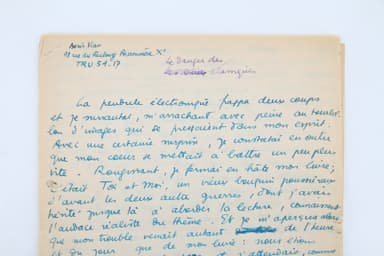 Boris Vian
98 rue du Faubourg Poissonnière Xe
TRU 54.17
Le danger des
classiques
La pendule électronique frappa deux coups
et je sursautai, m'arrachant avec peine au tourbil-
lon d'images qui se pressaient dans mon esprit.
Avec une certaine surprise, je constatai en outre
que mon coeur se mettait à battre un peu plus
vite. Rougissant, je fermai en hâte mon livre;
c'était Toi et Moi, un vieux bouquin poussiéreux
d'avant les deux autres guerres, dont j'avais
hésité jusque là à aborder la lecture, connaissant
l'audace réaliste du thème. Et je m'aperçus alors
que mon trouble venait autant de l'heure
et du jour que de mon livre: nous étions